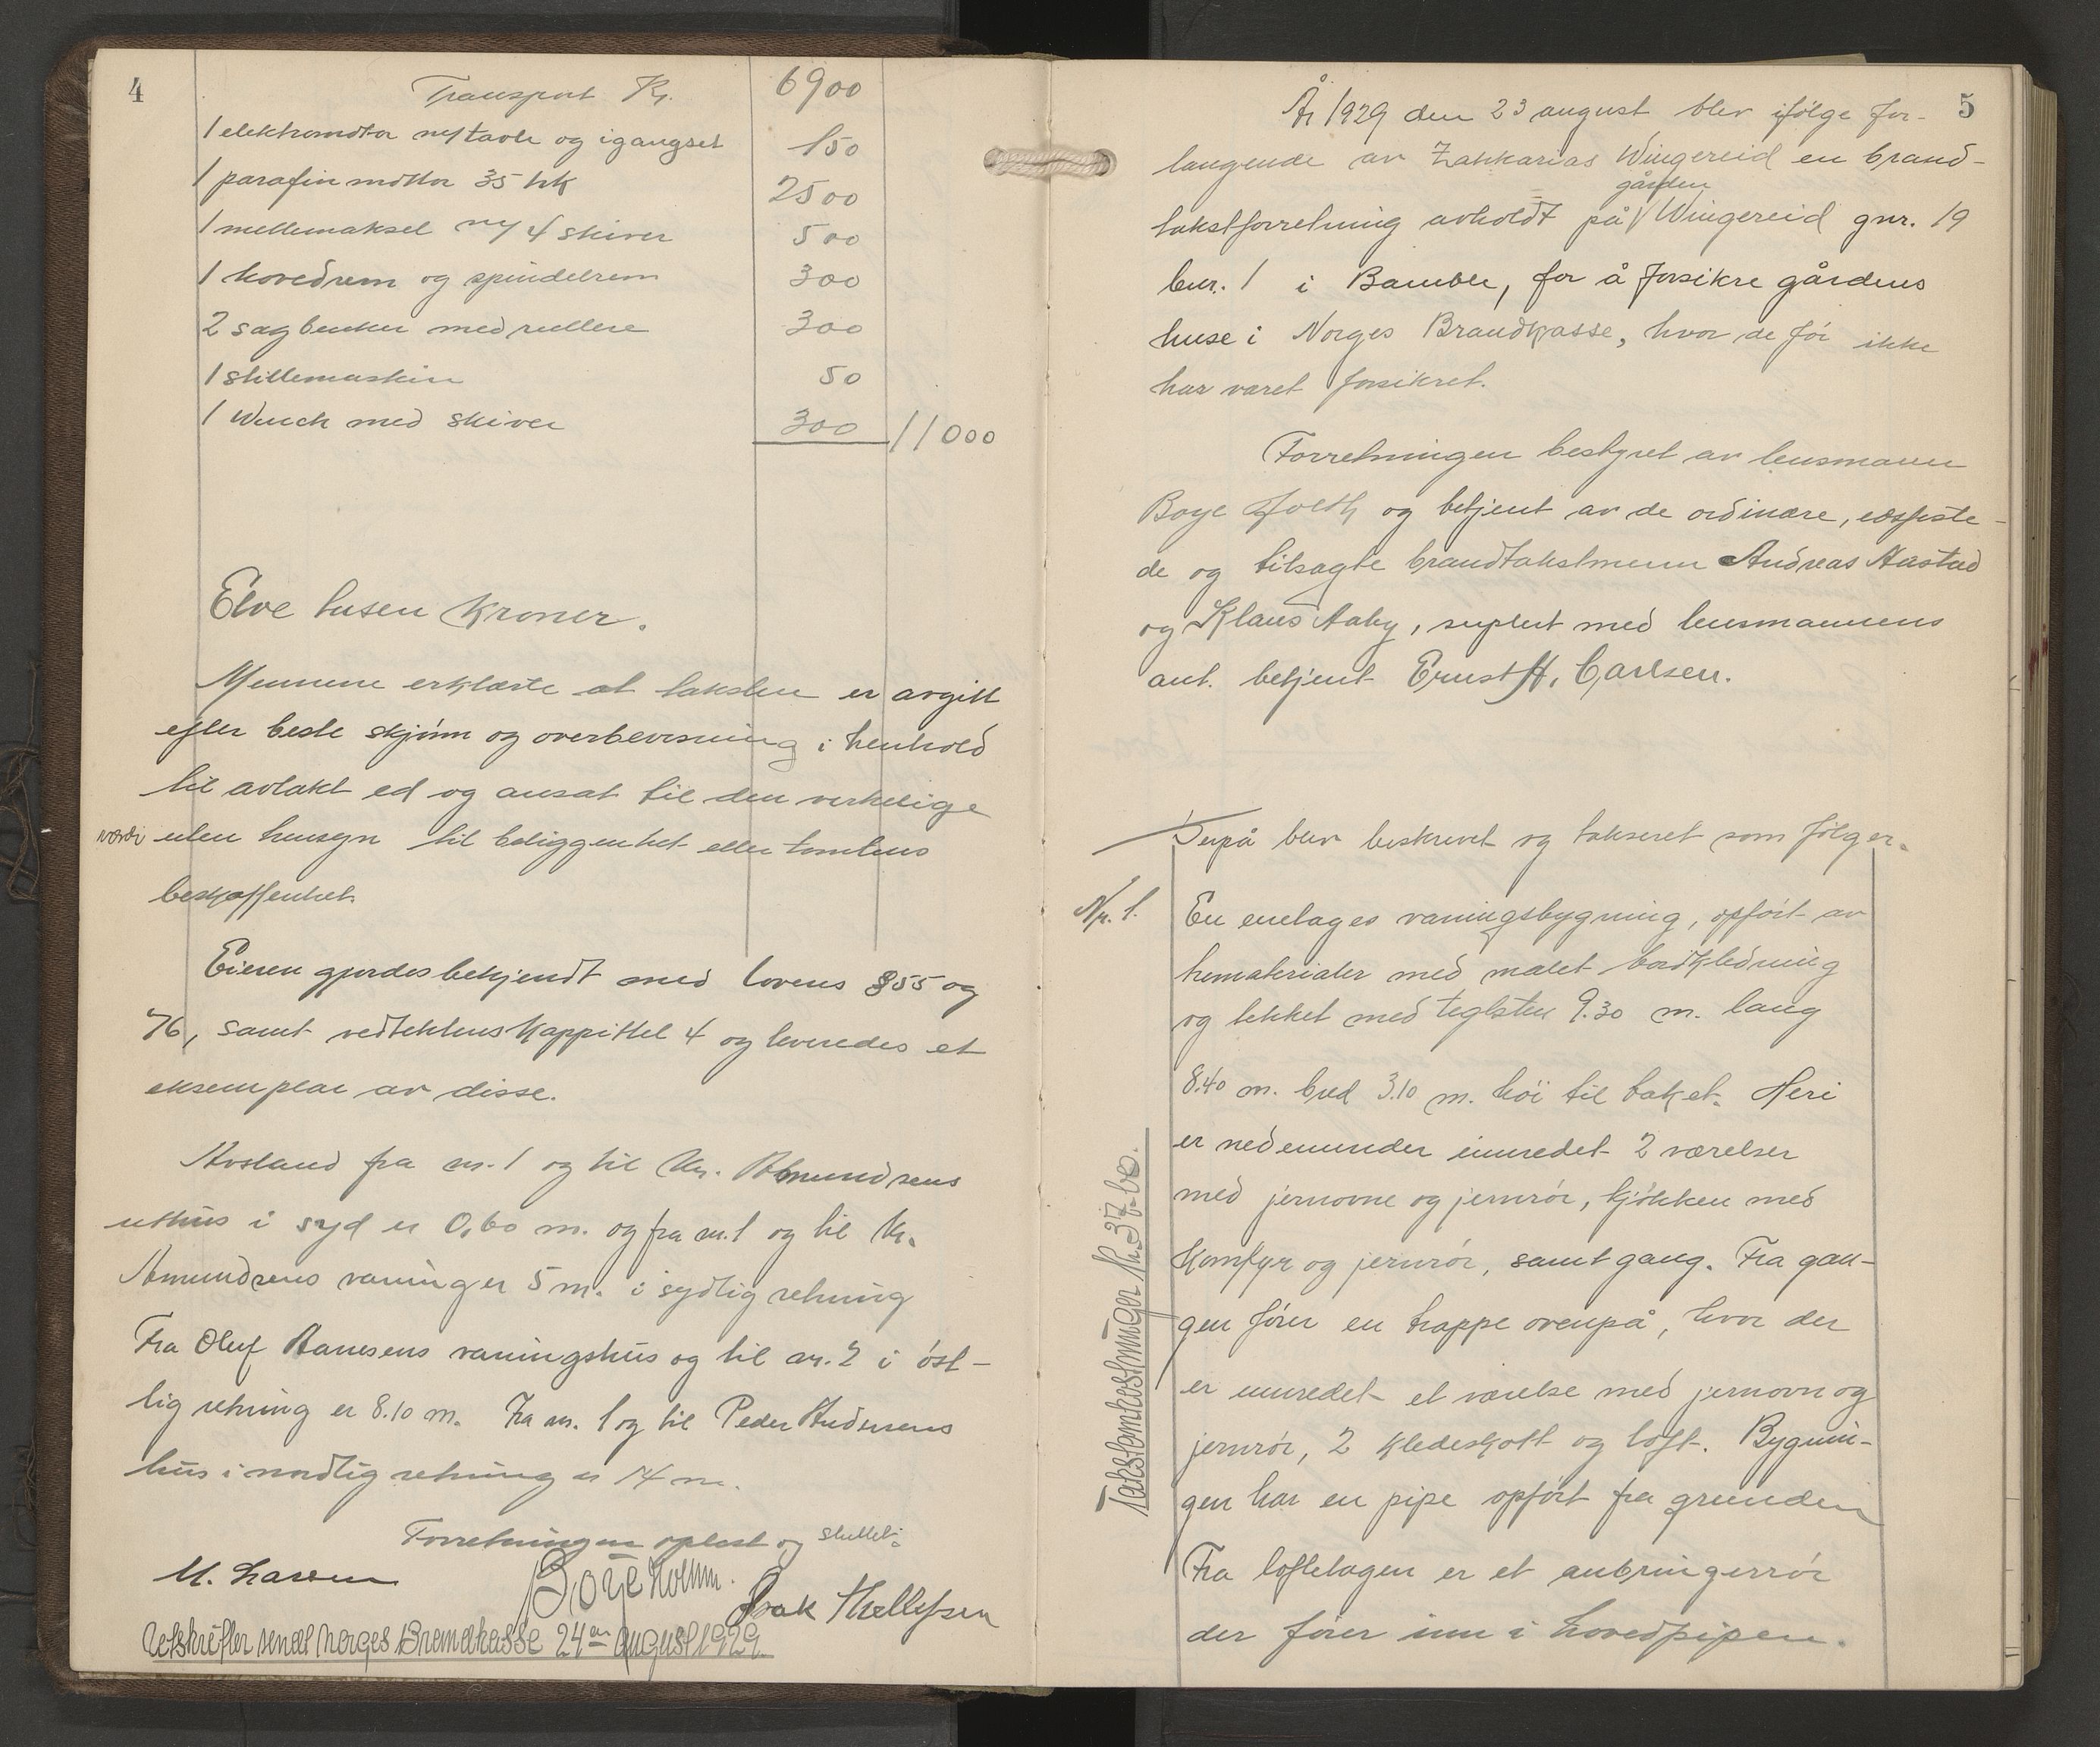 4
Transport Kr. 6900
1 elektromotor m/tavle og igangset 150
1 parafinmotor 35 hk 2500
1 mellemaksel m/ 4 skiver 500
1 hovedrem og spindelrem 300
2 sagbenker med rullere 300
1 stillemaskin 50
1 Winch med skiver 300 11000
Elve tusen kroner.
Mennene erklærte at taksten er avgitt
efter beste skjønn og overbevisning i henhold
til avlakt ed og ansat til den virkelige
værdi uten hensyn til beliggenhet eller tomtens
beskaffenhet.
Eieren gjordes bekjendt med lovens § 55 og
76, samt vedtektens kappittel 4 og leveredes et
eksemplar av disse.
Avstand fra nr. 1 og til Kr. Amundsens
uthus i syd er 0,60 m. og fra nr. 1 og til Kr.
Amundsens våning er 5 m. i sydlig retning
Fra Oluf Hansens våningshus og til nr. 2 i øst-
lig retning er 8.10 m. Fra nr. 1 og til Peder Andersens
hus i nordlig retning er 14 m.
Forretningen oplest og sluttet.
M. Larsen Boye Holm. Isak Thellefsen
Utskrifter sendt Norges Brandkasse 24de august 1929.
5
År 1929 den 23 august blev ifølge for-
langende av Zakkarias Wingereid en brand-
gården
takstforretning avholdt på Wingereid gnr. 19
bnr. 1 i Bamble, for å forsikre gårdens
huse i Norges Brandkasse, hvor de før ikke
har været forsikret.
Forretningen bestyret av lensmann
Boye Holm og betjent av de ordinære, edsfeste-
de og tilsagte brandtakstmenn Andreas Aastad
og Klaus Aaby, suplert med lensmannens
aut. betjent Ernst H. Carlsen.
Derpå blev beskrevet og taksert som følger.
Nr. 1. En enetages våningsbygning, opført av
trematerialer med malet bordkledning
og tekket med teglsten 9.30 m. lang
8.40 m. bred 3.10 m. høi til taket. Heri
er nedenunder innredet 2 værelser
med jernovne og jernrør, kjøkken med
komfyr og jernrør, samt gang. Fra gan-
gen fører en trappe ovenpå, hvor der
er innredet et værelse med jernovn og
jernrør, 2 kledeskott og loft. Bygnin-
gen har en pipe opført fra grunden
Fra loftetagen er et anbringerrør
der fører inn i hovedpipen.
Takstomkostninger Kr. 37.60.